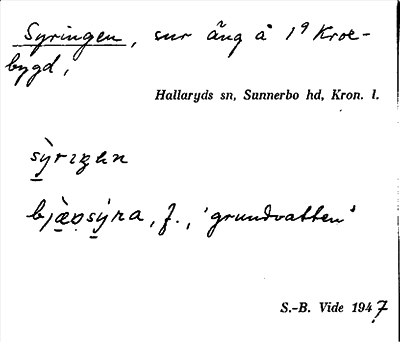 Syringen, sur äng å 1⁹ Kroe-
bygd,
Hallaryds sn, Sunnerbo hd, Kron. l.
sỳrıŋən
bjæ̀ṛsýra, f., 'grundvatten'
S.-B. Vide 1947